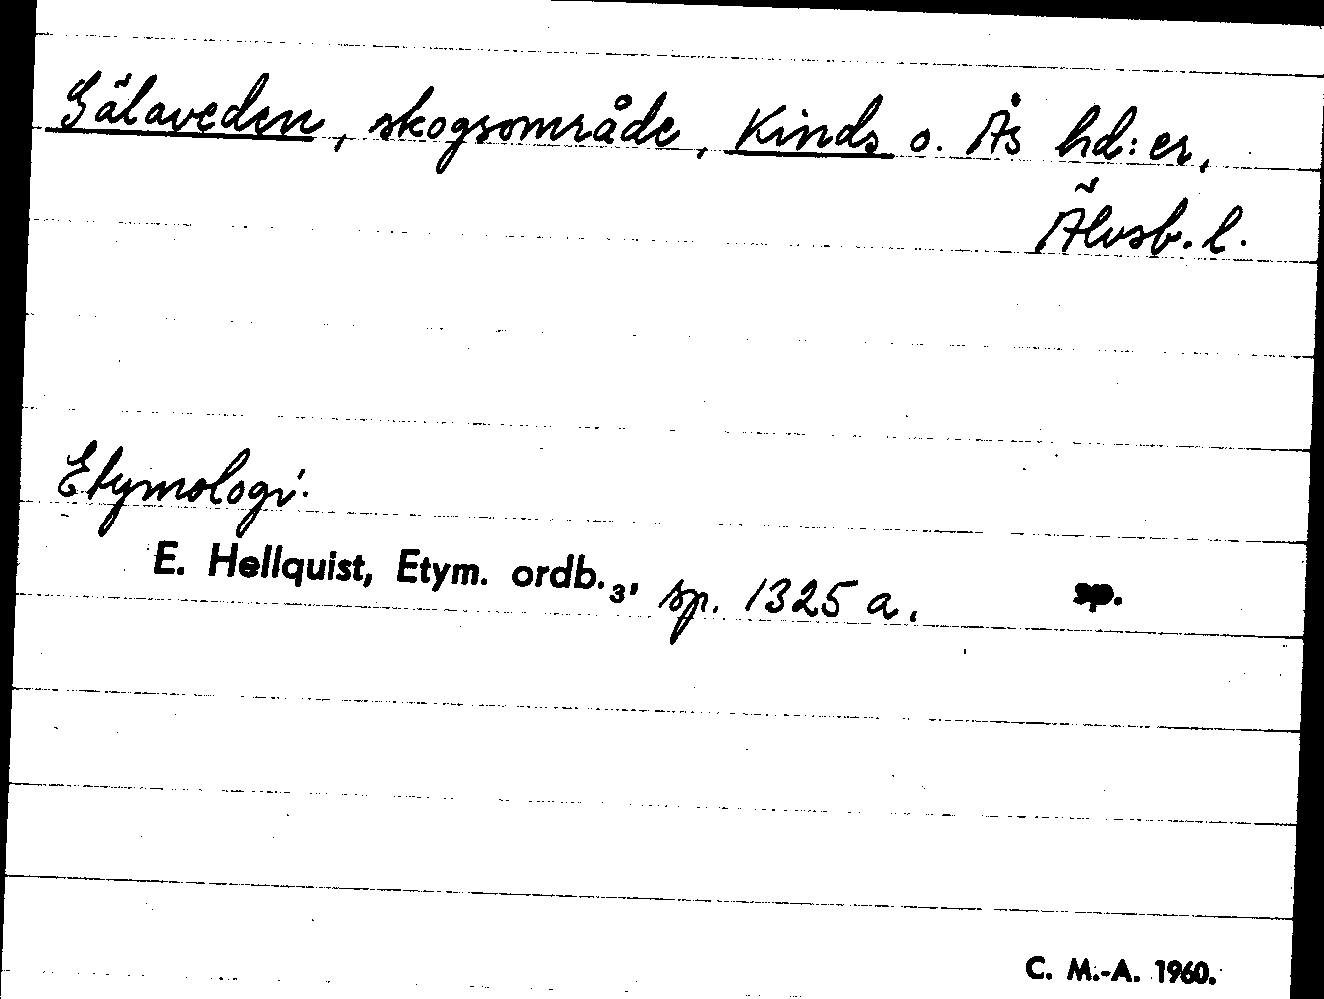 Sälaveden, skogsområde, Kinds o. Ås hd:er,
Älvsb. l.
Etymologi.
E. Hellquist, Etym. ordb.3, sp. 1325 a. sp.
C. M.-A. 1960.